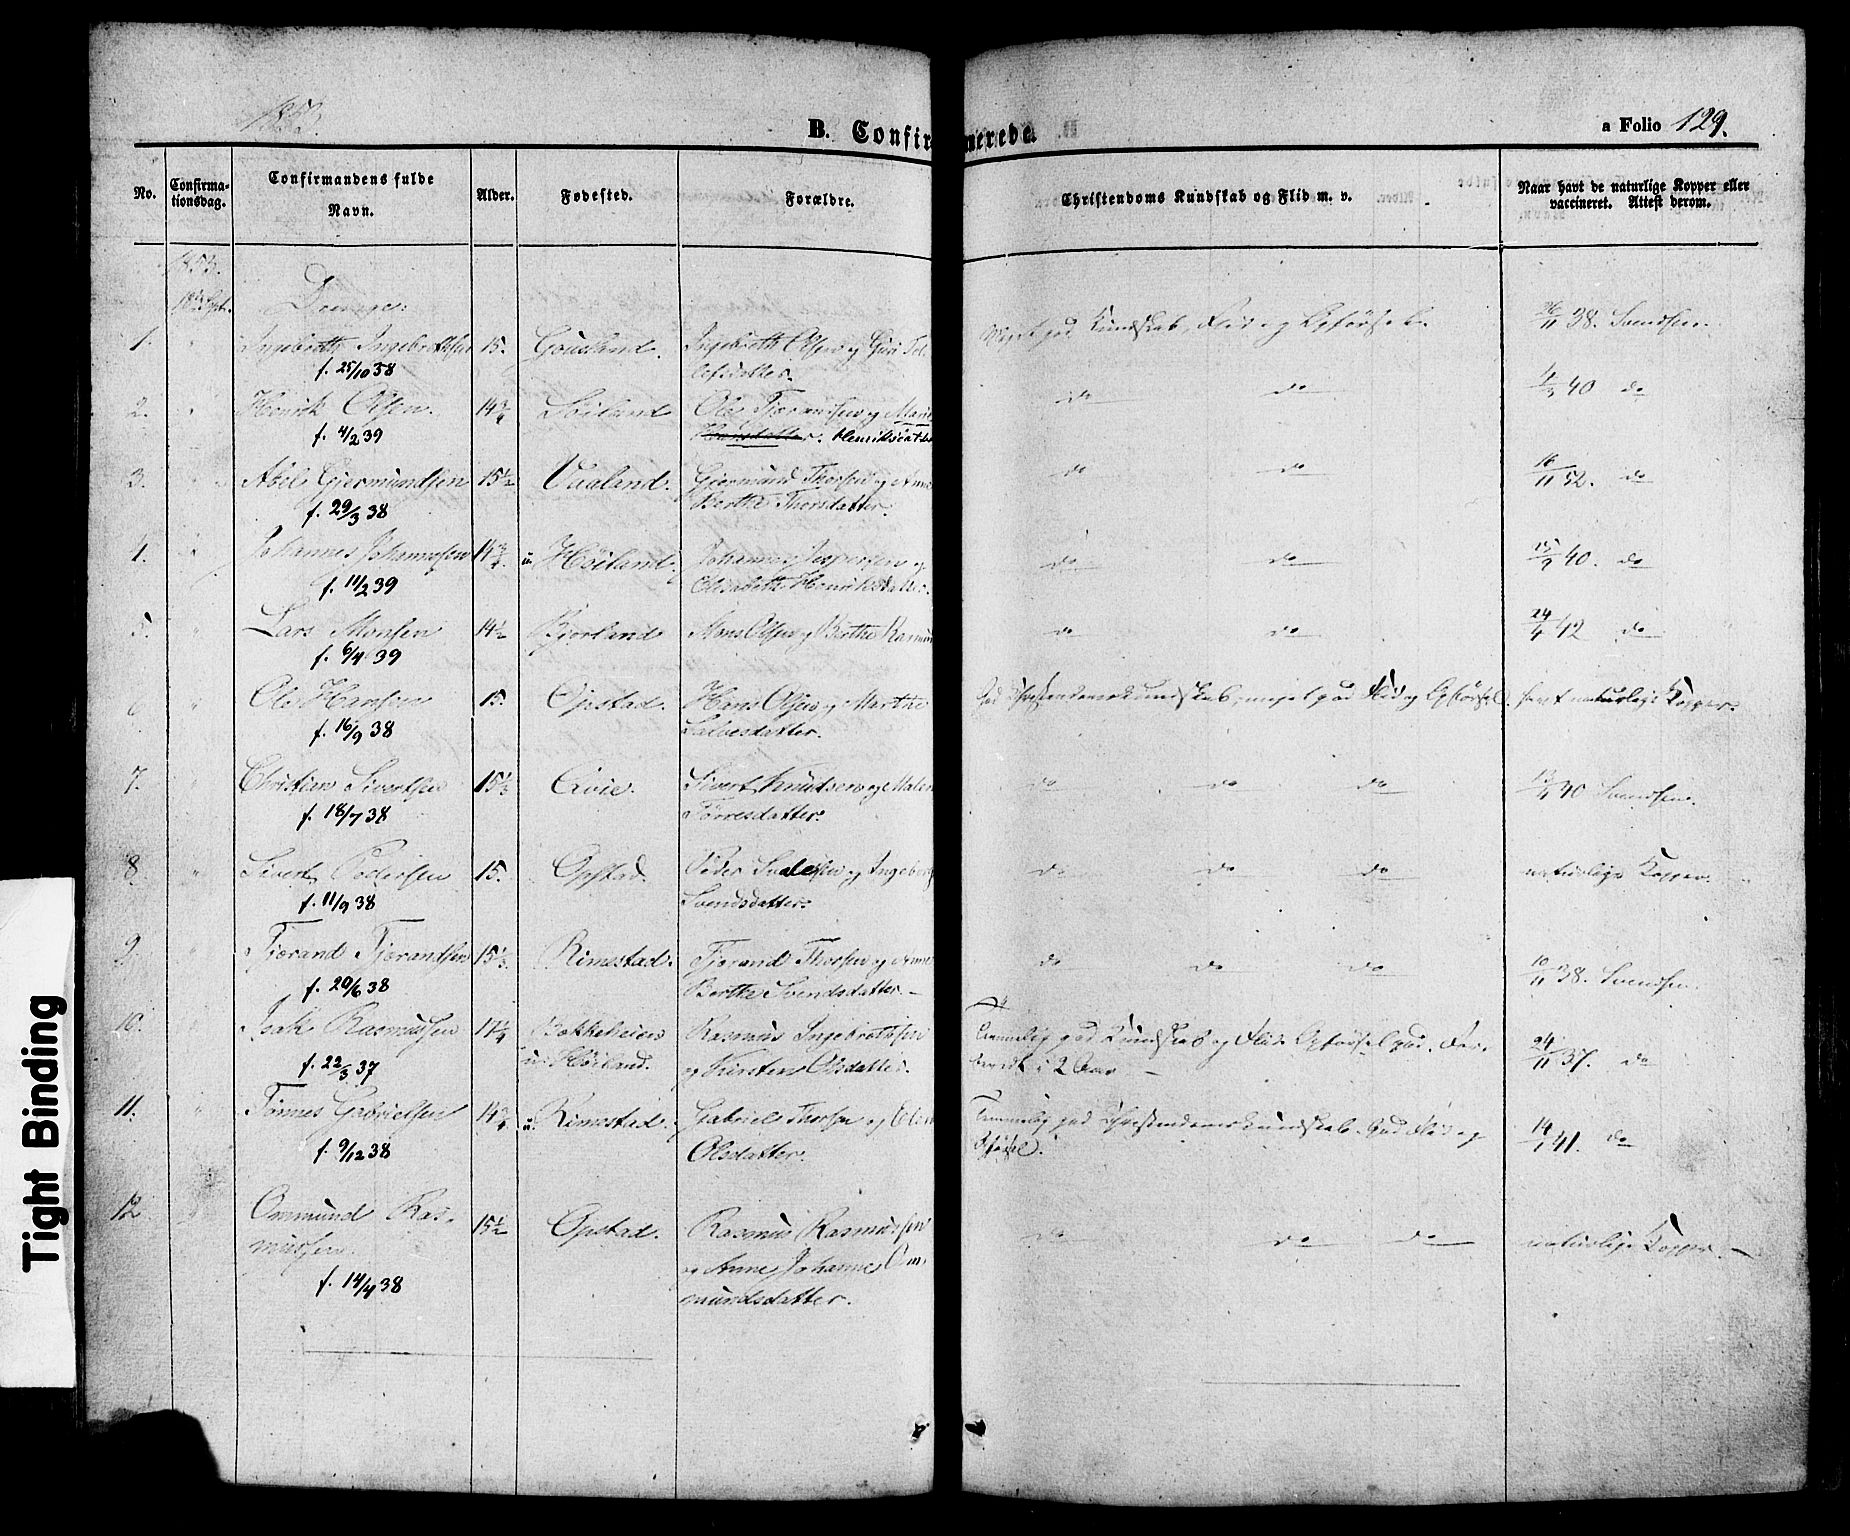 1853.
B. Confirmerede.
a Folio 129.
No.
Confirma-
tionsdag.
Confirmandens fulde
Navn.
Alder.
Fødested.
Forældre.
Christendoms Kundskab og Flid m. v.
Naar havt de naturlige Kopper eller
vaccineret. Attest derom.
1853.
18de Sept. Drenge:
1. Ingebreth Ingebrethsen 15. Gousland. Ingebreth Olsen og Guri Tol-
f. 25/10 38 lefsdatter. Meget god Kundskab, Flid og Opførsel. 26/11 38. Svendsen.
2. Henrik Olsen. 14 3/4 Loiland Ole Tjerandsen og Marie
f. 4/2 39 Henriksdatter do do 4/3 40 do
3. Abel Gjermundsen 15 1/2 Vaaland. Gjermund Thorsen og Anne
f. 29/3 38 Berthe Thorsdatter. do do 16/11 52. do
4. Johannes Johannesen 14 3/4 u. Høiland. Johannes Jespersen og
f. 11/2 39 Elisabeth Henriksdatter. do do 40. do
5. Lars Monsen 14 1/2 Bjorland Mons Olsen og Berthe Rasmus
f. 6/4 39 do do 42 do
6 Ole Hansen 15. Opstad. Hans Olsen og Marthe
f. 16/9 38 Salvesdatter. God Christendomskundskab, meget god Flid og Opførsel. havt naturlige Kopper.
7. Christian Sivertsen 15 1/3 Qvie. Sivert Knudsen og Malene
f. 18/7 38 Tørresdatter. do do do 40 Svendsen.
8. Sivert Pedersen 15. Opstad. Peder Salvesen og Ingeborg
f. 11/9 38 Svendsdatter. do do do naturlige Kopper.
9. Tjerand Tjerandsen 15 1/3. Rimestad. Tjerand Thorsen og Anne
f. 20/6 38 Berthe Svendsdatter. do do do 10/11 38. Svendsen.
10. Isak Rasmussen 17 1/4 Bakkeheien Rasmus Ingebrethsen
f. 22/3 37 u. Høiland. og Kirsten Olsdatter. Temmelig god Kundskab og Flid. Opførsel god.
i 2 Aar 24/11 37. do
11. Tønnes Gabrielsen 14 3/4 u. Rimestad. Gabriel Thorsen og Elen
f. 9/12 38 Olsdatter. Temmelig god Christendomskundskab. God Flid og
Opførsel. 41. do
12 Ommund Ras-
mussen. 15 1/2 Opstad. Rasmus Rasmussen
f. 14/4 38 og Anne Johanne Om-
mundsdatter. do do do naturlige Kopper.
Tight Binding